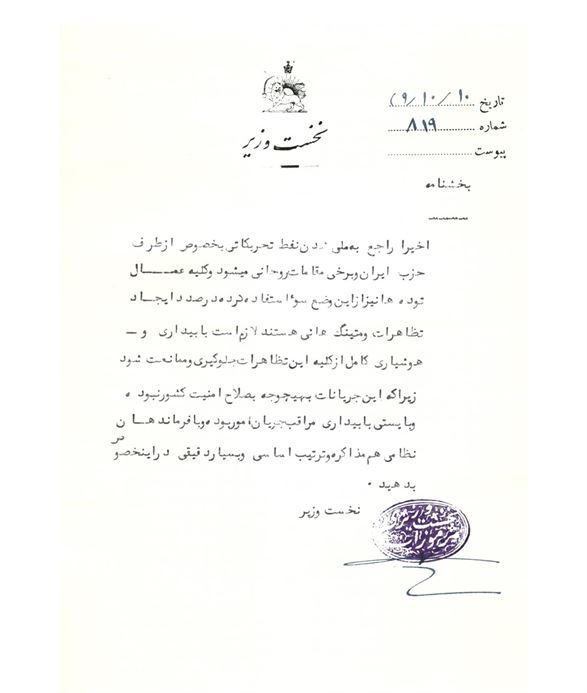 تاریخ ۱۰/۱۰/۹
شماره ۸۱۹
پیوست
نخست وزیر
بخشنامه
اخیرا راجع بهملی شدن نفط تحریکاتی بخصوص از طرف
حزب ایران وبرخی مقامات روحانی میشود وکلیه عمـــال
توده ها نیز از این وضع سوءاستفاده کرده درصدد ایجـاد
تظاهرات ومتینگ هائی هستند لازم است با بیداری و ــ
هوشیاری کامل از کلیه این تظاهرات جلوگیری وممانعت شود
زیرا که این جریانات بهیچوجه بصلاح امنیت کشور نبوده
وبایستی با بیداری مراقب جریان امور بوده وبا فرماندهـان
نظامی هم مذاکره وترتیب اساسی وبسیار دقیقی در اینخصوص
بدهید .
نخست وزیر